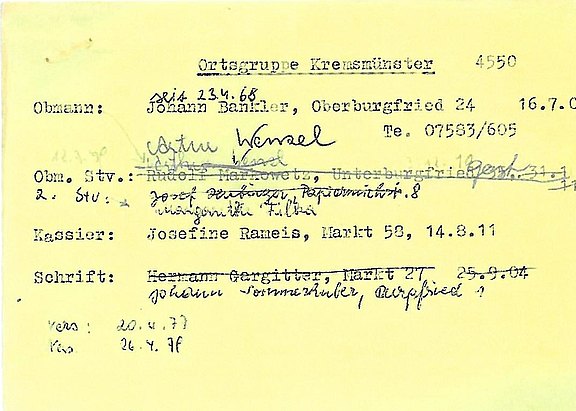 Ortsgruppe Kremsmünster 4550
seit 23.4.68
Obmann: Johann Bankler, Oberburgfried 24 16.7.0
Te. 07583/605
Artur Wensel
Obm. Stv.: Rudolf Markowetz, Unterburgfried 31.1
2. Stv: Josef 8
Kassier: Josefine Rameis, Markt 58, 14.8.11
Schrift: Hermann Gargitter, Markt 27 25.9.04
Johann Sommerhuber, Burgfried
Vers: 20.4.77
26.4.78